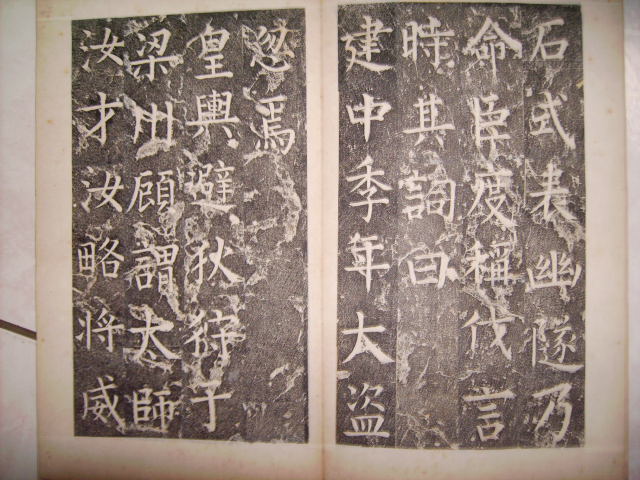 石式表幽隧乃
命臣度稱伐言
時其詞曰
建中季年大盗
忽焉
皇輿避狄狩于
梁川顧謂太師
汝才汝略将威